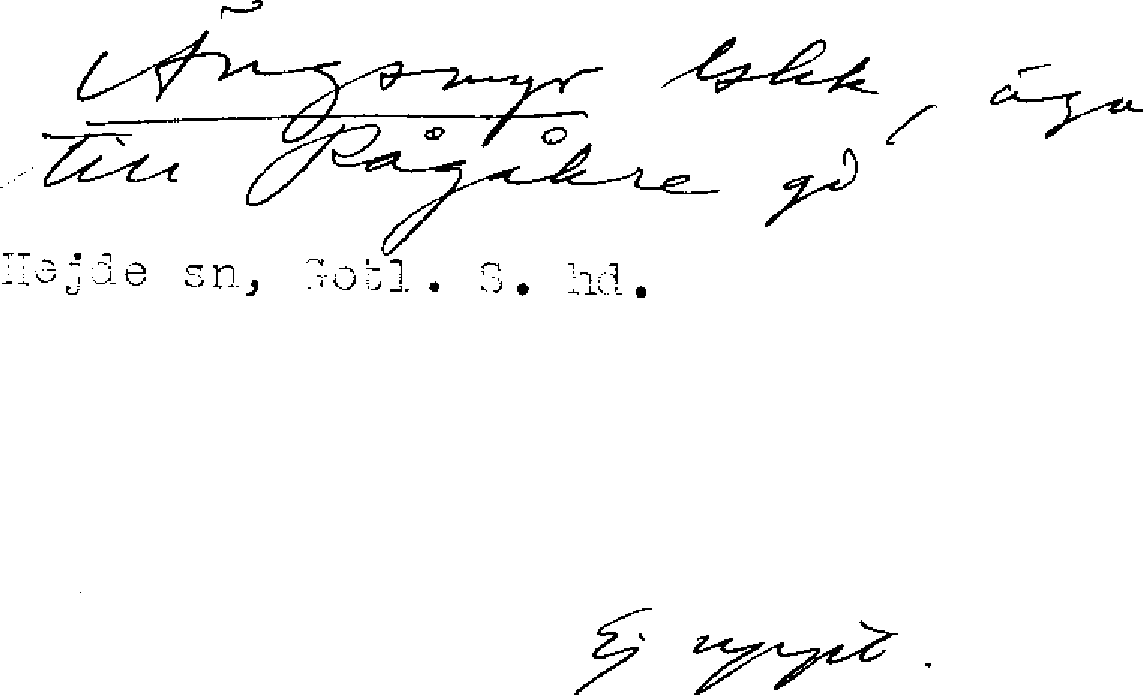 Ängsmyr lskk, äga
till Rågåkre gd
Hejde sn, Gotl. S. hd.
Ej nypt.